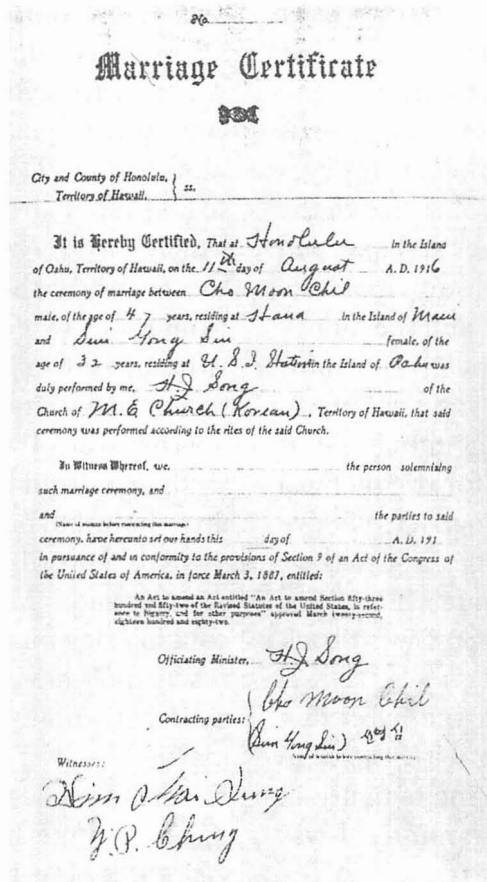 No
Marriage Certificate
City and County of Honolulu,
Territory of Hawaii. } ss.
It is Hereby Certified, That at Honolulu in the Island
of Oahu, Territory of Hawaii, on the 11th day of August A. D. 1916
the ceremony of marriage between Cho Moon Chil
male, of the age of 47 years, residing at Hana in the Island of Maui
and Sim Yong Sin female, of the
age of 32 years, residing at U. S. I. Station in the Island of Oahu was
duly performed by me, H. J. Song of the
Church of M. E. Church (Korean), Territory of Hawaii, that said
ceremony was performed according to the rites of the said Church.
In Witness Whereof, we, the person solemnizing
such marriage ceremony, and
and the parties to said
(Name of woman before contracting this marriage)
ceremony, have hereunto set our hands this day of A. D. 191
in pursuance of and in conformity to the provisions of Section 9 of an Act of the Congress of
the United States of America, in force March 3, 1887, entitled:
An Act to amend an Act entitled "An Act to amend Section fifty-three
hundred and fifty-two of the Revised Statutes of the United States, in refer-
ence to bigamy, and for other purposes" approved March twenty-second,
eighteen hundred and eighty-two.
Officiating Minister, H. J. Song
Cho Moon Chil
Contracting parties:
(Sim Yong Sin)
(Name of woman before contracting this marriage)
Witnesses:
Y. P. Chung